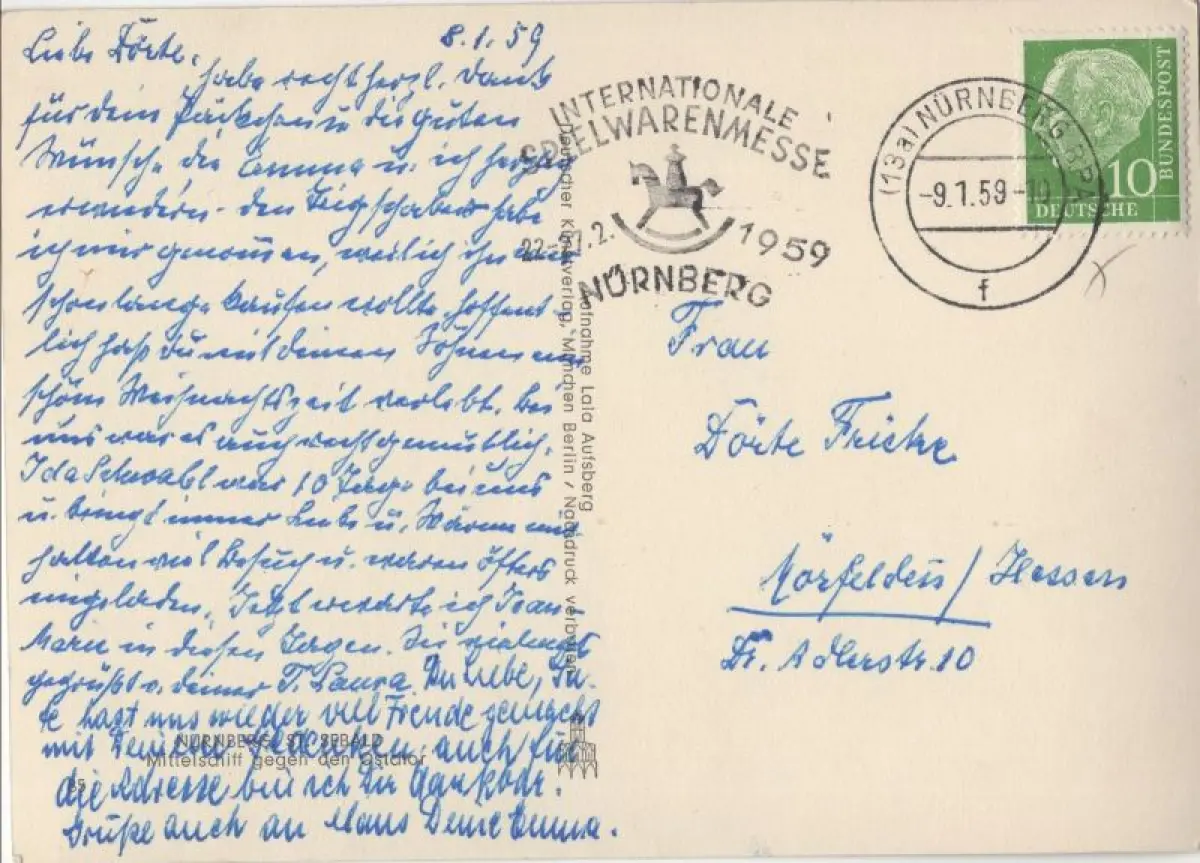 Liebe Dörte,
8.1.59
habe recht herzl. Dank
für dein Päckchen u. die guten
Wünsche die Emma u. ich herzl.
erwiedern. den habe
ich mir genommen, weil ich ihn mir
schon lange kaufen wollte. hoffent
lich hast du mit deinen Söhnen eine
schöne Weihnachtszeit verlebt. Bei
uns war es auch recht gemütlich.
Ida Schwabl war 10 Tage bei uns
u. bringt immer Liebe u. Wärme mit
hatten viel Besuch u. waren öfters
eingeladen. Jetzt erwarte ich Jean
Marie in diesen Tagen. Sei vielmals
gegrüßt v. deiner T. Laura. Du Liebe, Gu-
te hast uns wieder viel Freude gemacht
mit Deinem Gedenken, auch für
die Adresse bin ich Dir dankbar.
Grüße auch an Klaus Deine Emma.
NÜRNBERG, ST. SEBALD
Mittelschiff gegen den Ostchor
Aufnahme Lala Aufsberg
Deutscher Kunstverlag, München Berlin / Nachdruck verboten
INTERNATIONALE
SPIELWARENMESSE
1959
NÜRNBERG
(13a) NÜRNBERG BPA
-9.1.59-10
f
10
DEUTSCHE
BUNDESPOST
Frau
Dörte Fricke
Mörfelden / Hessen
Gr. Adlerstr. 10